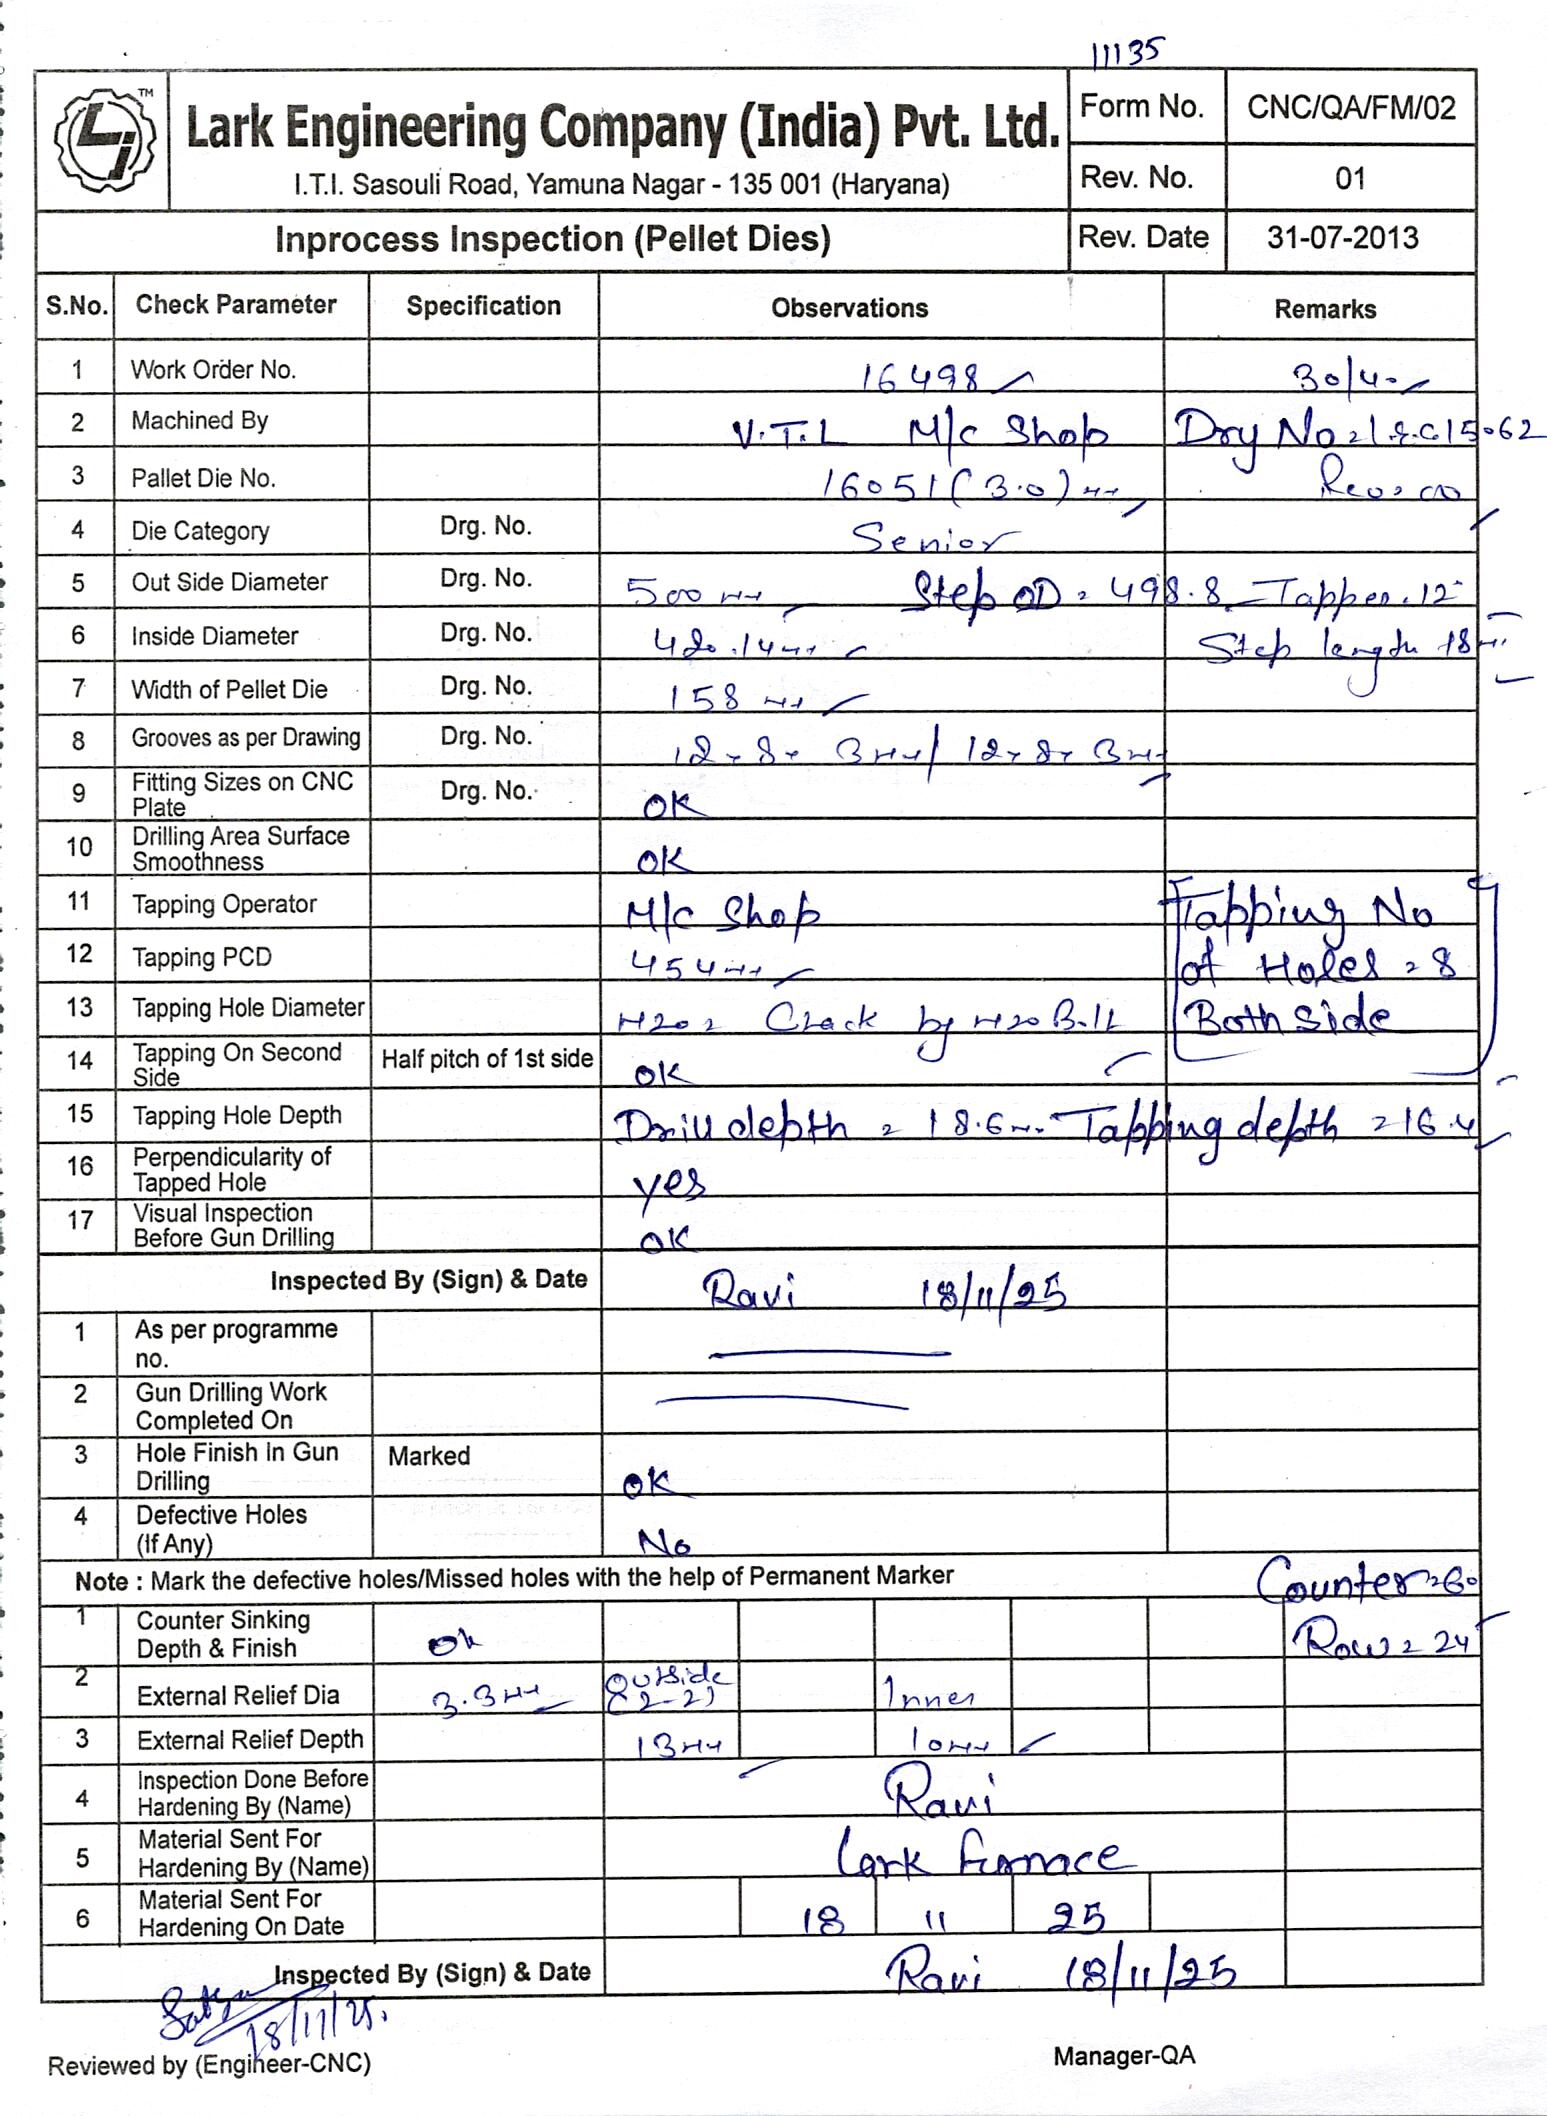 11135
TM
Lark Engineering Company (India) Pvt. Ltd.
I.T.I. Sasouli Road, Yamuna Nagar - 135 001 (Haryana)
Form No. CNC/QA/FM/02
Rev. No. 01
Inprocess Inspection (Pellet Dies) Rev. Date 31-07-2013
S.No. Check Parameter Specification Observations Remarks
1 Work Order No. 16498 30/40
2 Machined By V.T.L M/c Shop
3 Pallet Die No. 16051 (3.0)
4 Die Category Drg. No. Senior
5 Out Side Diameter Drg. No. 500 Step OD = 498.8 Tapper. 12
6 Inside Diameter Drg. No. 420.14 Step length 18
7 Width of Pellet Die Drg. No. 158
8 Grooves as per Drawing Drg. No. 12 × 8 × 3 / 12 × 8 × 3
9 Fitting Sizes on CNC Plate Drg. No. OK
10 Drilling Area Surface Smoothness OK
11 Tapping Operator M/c Shop Tapping No
12 Tapping PCD 454 of Holes = 8
13 Tapping Hole Diameter M20 = Check by M20 Bolt Both side
14 Tapping On Second Side Half pitch of 1st side OK
15 Tapping Hole Depth Drill depth = 18.6 Tapping depth = 16.4
16 Perpendicularity of Tapped Hole yes
17 Visual Inspection Before Gun Drilling OK
Inspected By (Sign) & Date Ravi 18/11/25
1 As per programme no.
2 Gun Drilling Work Completed On
3 Hole Finish In Gun Drilling Marked OK
4 Defective Holes (If Any) No
Note : Mark the defective holes/Missed holes with the help of Permanent Marker Counter = 60
1 Counter Sinking Depth & Finish Ok Row = 24
2 External Relief Dia 3.3 Outside (2-2) Inner
3 External Relief Depth 13 10
4 Inspection Done Before Hardening By (Name) Ravi
5 Material Sent For Hardening By (Name) Lark furnace
6 Material Sent For Hardening On Date 18 11 25
Inspected By (Sign) & Date Ravi 18/11/25
18/11/25.
Reviewed by (Engineer-CNC) Manager-QA